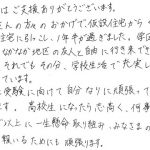 はご支援ありがとうございます。
さんの方々のおかげで仮設住宅から
住宅に引っこし、1年半が過ぎました。学区
なかなか地区の友人と自由に行き来でき
それでもその分、学校生活で充実し
ています。
は受験に向けて自分なりに頑張って
ます。高校生になったら高く、何事
以上に一生懸命取り組み、みなさまの
報いるためにも頑張ります。